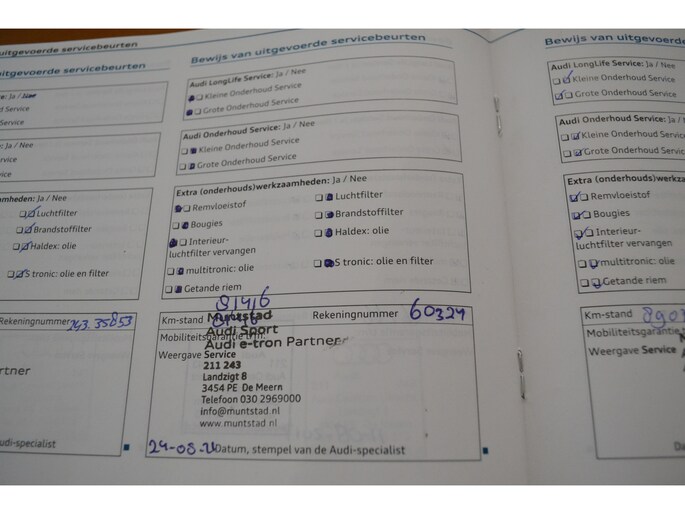 uitgevoerde servicebeurten
itgevoerde servicebeurten
ce: Ja /
d Service
Service
: Ja / Nee
rvice
ervice
amheden: Ja / Nee
Luchtfilter
Brandstoffilter
Haldex: olie
S tronic: olie en filter
Rekeningnummer 243.35853
rtner
udi-specialist
Bewijs van uitgevoerde servicebeurten
Audi LongLife Service: Ja / Nee
Kleine Onderhoud Service
Grote Onderhoud Service
Audi Onderhoud Service: Ja / Nee
Kleine Onderhoud Service
Grote Onderhoud Service
Extra (onderhouds)werkzaamheden: Ja / Nee
Remvloeistof
Bougies
Interieur-
luchtfilter vervangen
multitronic: olie
Getande riem
Luchtfilter
Brandstoffilter
Haldex: olie
S tronic: olie en filter
81416
Km-stand
Rekeningnummer 60324
Muntstad
Audi Sport
Mobiliteitsgarantie t/m:
Audi e-tron Partner
Weergave Service
211 243
Landzigt 8
3454 PE De Meern
Telefoon 030 2969000
info@muntstad.nl
www.muntstad.nl
Datum, stempel van de Audi-specialist
Bewijs van uitgevoerde s
Audi LongLife Service: Ja / Nee
Kleine Onderhoud Service
Grote Onderhoud Service
Audi Onderhoud Service: Ja / Nee
Kleine Onderhoud Service
Grote Onderhoud Service
Extra (onderhouds)werkzaam
Remvloeistof
Bougies
Interieur-
luchtfilter vervangen
multitronic: olie
Getande riem
Km-stand
Mobiliteitsgarantie
Weergave Service
Datum, st